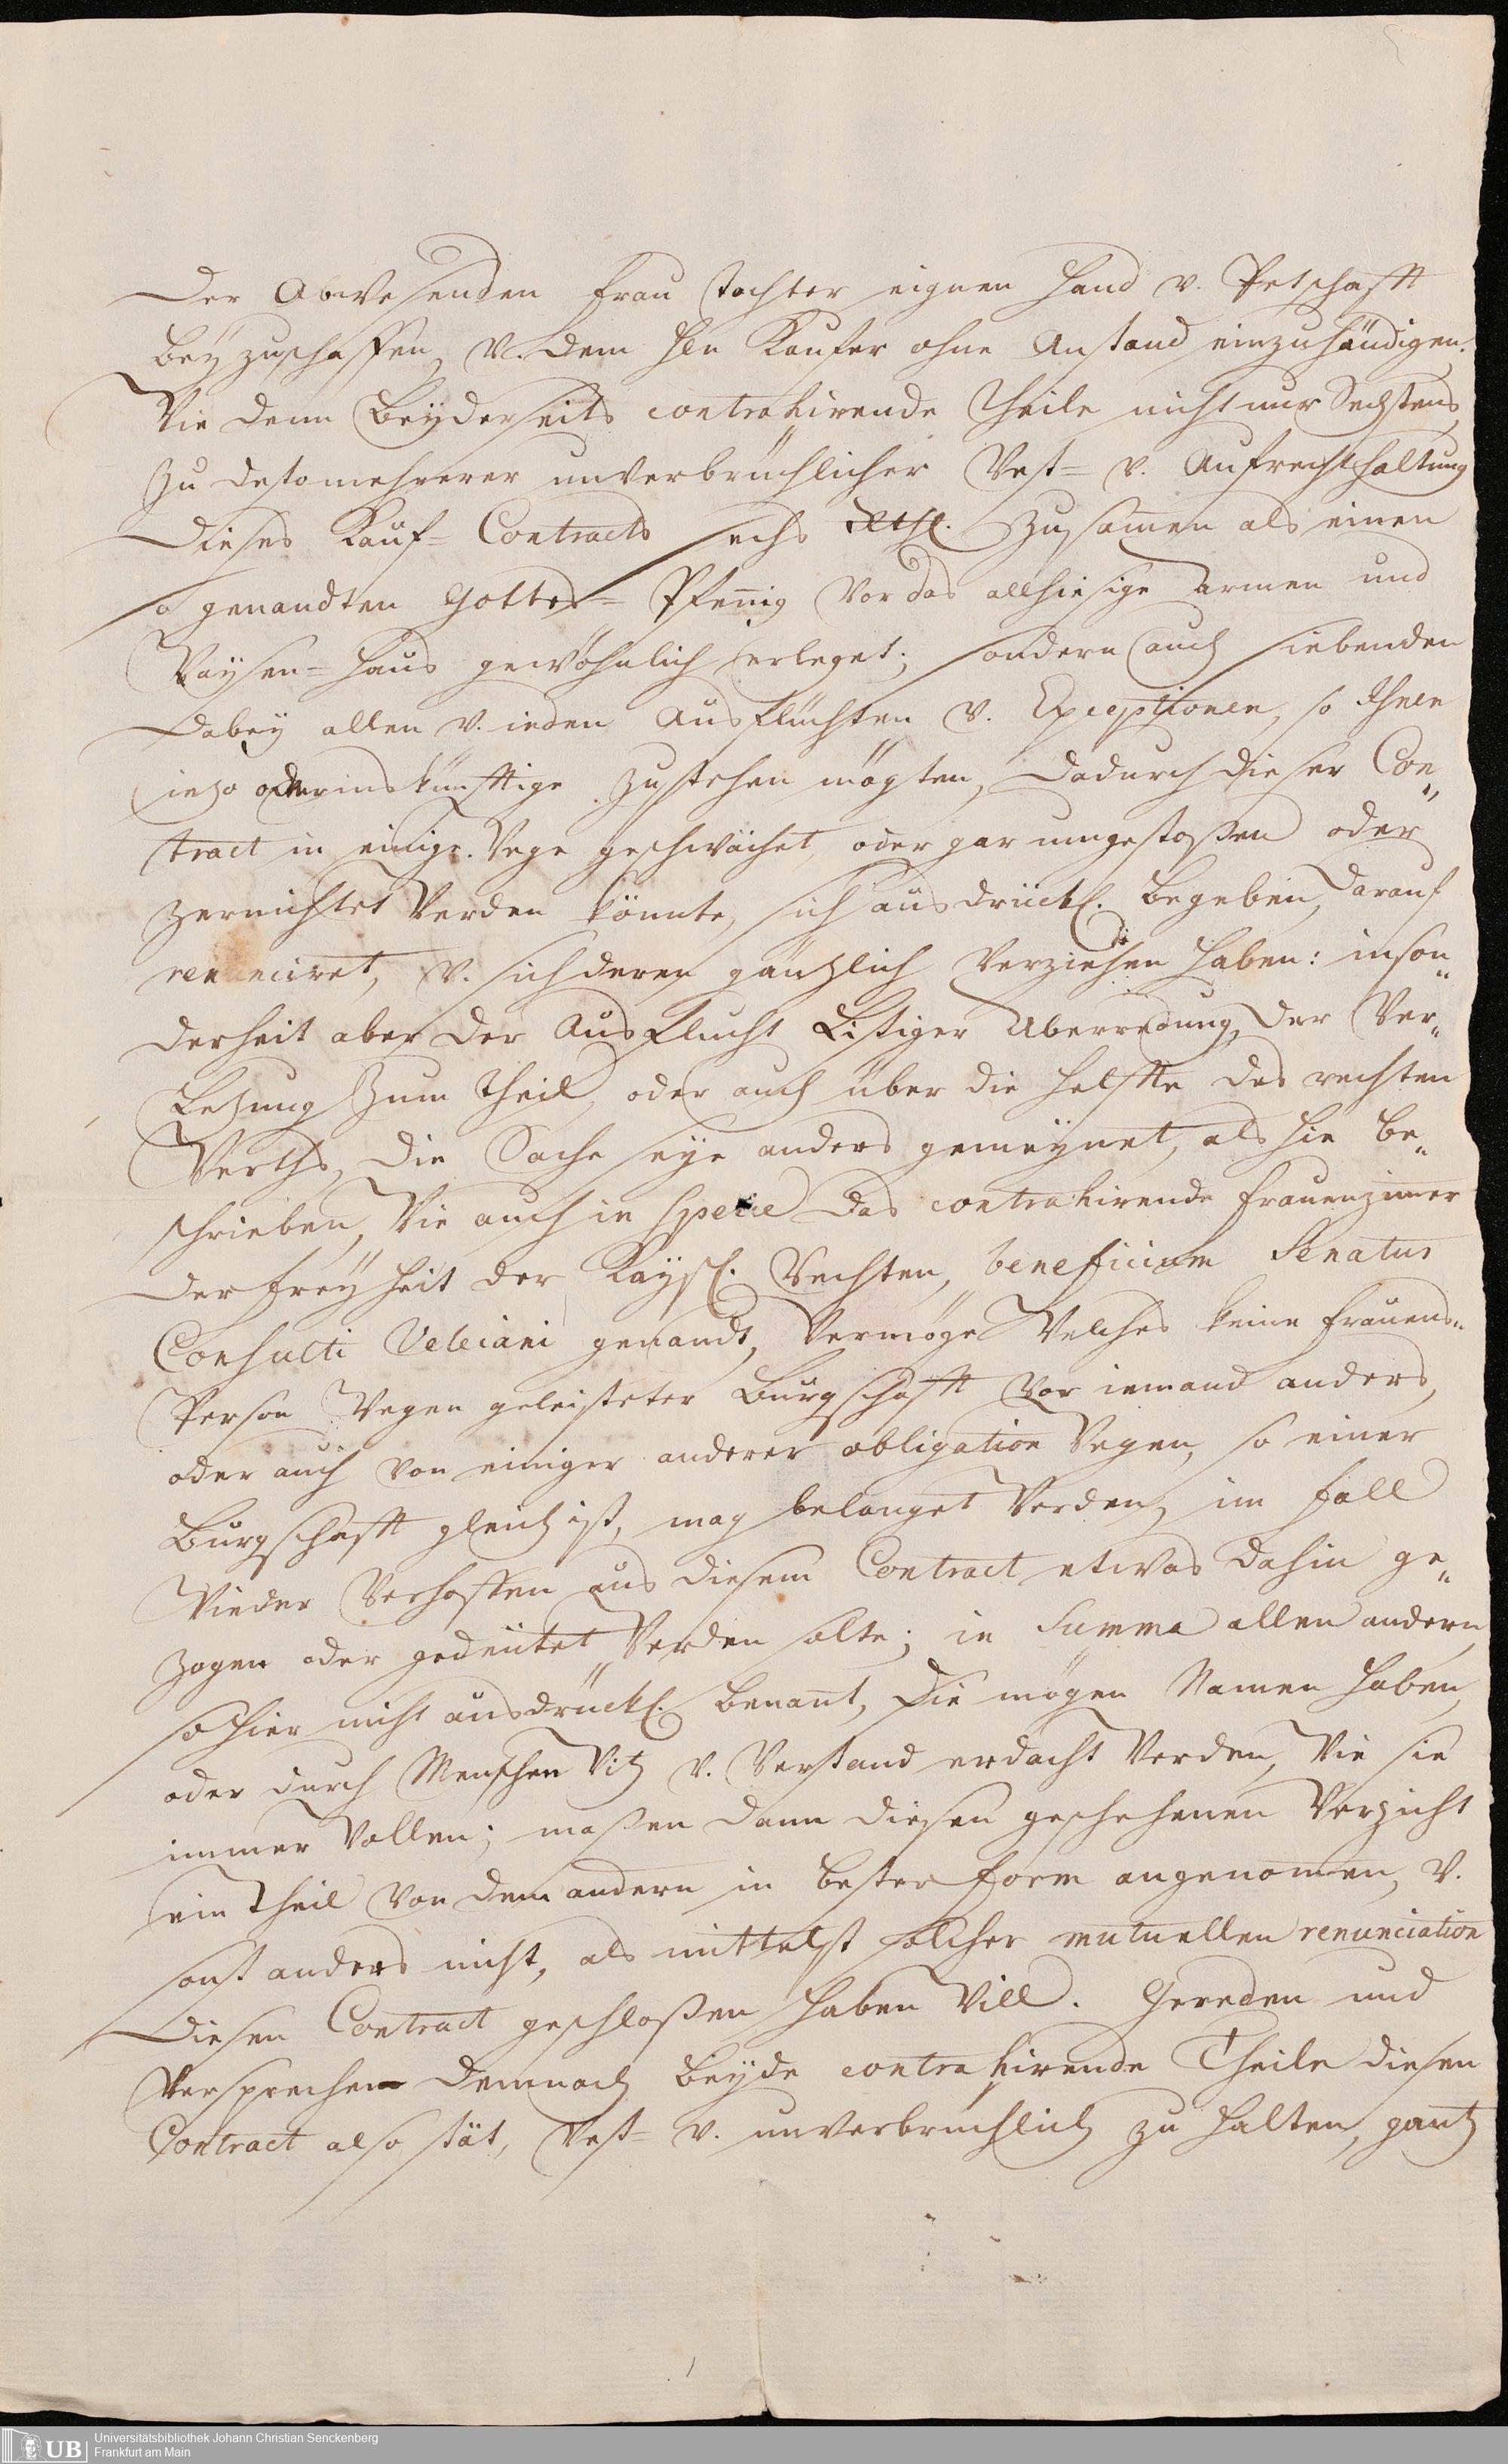 der Abwesenden Frau Tochter eignen Hand v. Petschafft
beyzuschaffen, v. dem Hln Kaufer ohne Anstand einzuhändigen.
Wie denn Beyderseits contrahirende Theile nicht nur Sechstens,
zu destomehrerer unverbrüchlicher Vest- v. Aufrechthaltung
dieses Kauf-Contracts sechs Rthl. zusamen als einen
so genandten Gottes-Pfennig vor das allhiesige Armen und
Waysen-Haus gewöhnlich erleget; sondern auch siebenden
dabey allen v. ieden Ausflüchten v. Exceptionen, so Ihnen
iezo oder ins künfftige zustehen mögten, dadurch dieser Con„
tract in einige Wege geschwächet, oder gar umgestoßen oder
zernichtet werden könnte, sich ausdrückl. begeben, darauf
renunciret, v. sich deren gänzlich verziehen haben: inson„
derheit aber der Ausflucht Listiger Überredung, der Ver„
lezung zum Theil, oder auch über die Helffte des rechten
Werths, die Sache seye anders gemeynet, als hie be„
schrieben, Wie auch in specie das contrahirende Frauenzimer
der Freyheit der Kaysl. Rechten, beneficium Senatus
Consulti Velleiani genandt, Vermöge Welches keine Frauens„
Person Wegen geleisteter Bürgschafft vor iemand anders,
oder auch von einiger anderer obligation Wegen, so einer
Bürgschafft gleich ist, mag belanget Werden, im Fall
Wieder Verhoffen aus diesem Contract etwas dahin ge„
zogen oder gedeutet Werden solte; in Summa allen andern,
so hier nicht ausdrückl. benant, Sie mögen Namen haben,
oder durch Menschen Witz v. Verstand erdacht Werden, Wie sie
immer Wollen; maßen dann diesen geschehenen Verzicht
ein Theil von dem andern in bester Form angenomen, v.
sonst anders nicht, als mittelst solcher mutuellen renunciation
diesen Contract geschloßen haben Will. Gereden und
Versprechen demnach beyde contrahirende Theile diesen
Contract also stät, Vest- v. unverbrüchlich zu halten, gantz
UB Universitätsbibliothek Johann Christian Senckenberg
Frankfurt am Main